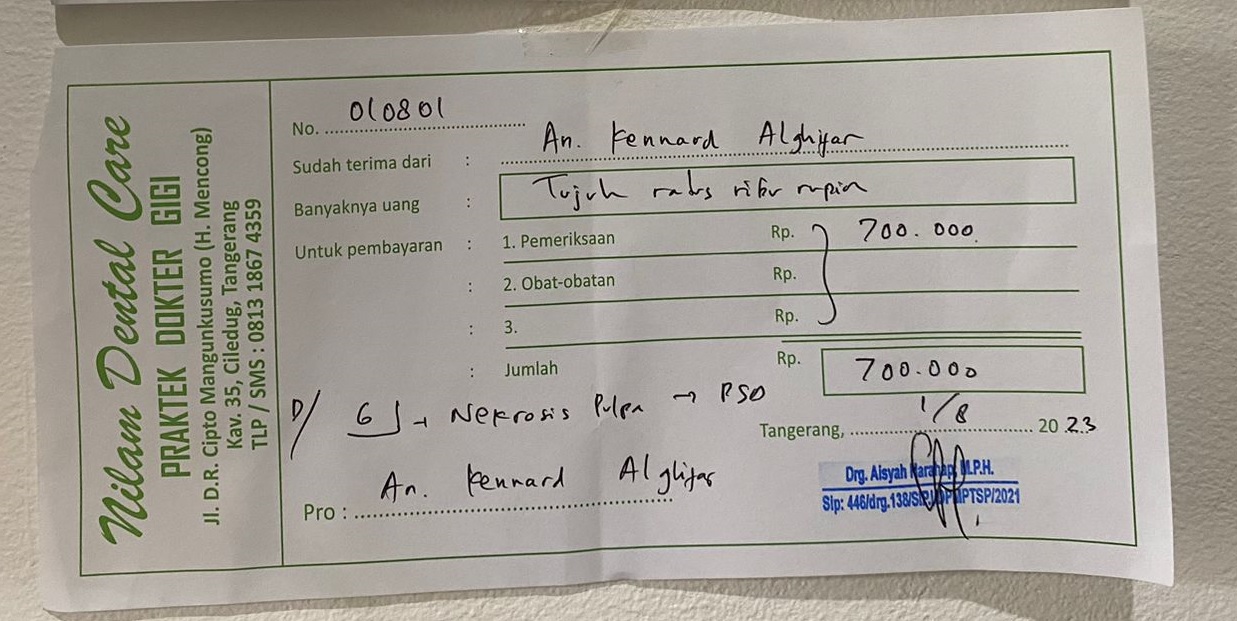 Nilam Dental Care
PRAKTEK DOKTER GIGI
Jl. D.R. Cipto Mangunkusumo (H. Mencong)
Kav. 35, Ciledug, Tangerang
TLP / SMS : 0813 1867 4359
No. 010801
Sudah terima dari : An. Kennard Alghifar
Banyaknya uang : Tujuh ratus ribu rupiah
Untuk pembayaran : 1. Pemeriksaan Rp. 700.000
: 2. Obat-obatan Rp.
: 3. Rp.
: Jumlah Rp. 700.000
D/ 6 Nekrosis Pulpa → PSO
Tangerang, 1/8 2023
Pro : An. Kennard Alghifar
Drg. Aisyah Harahap, M.P.H.
Sip: 446/drg.138/